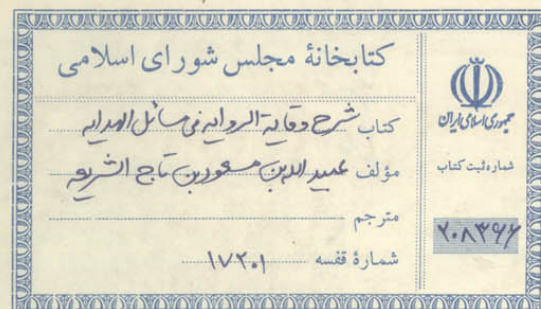 کتابخانهٔ مجلس شورای اسلامی
کتاب شرح وقایة الروایه فی مسائل الهدایه
مؤلف عبید الله بن مسعود بن تاج الشریعه
مترجم
شمارهٔ قفسه ۱۷۲۰۱
جمهوری اسلامی ایران
شماره ثبت کتاب
۲۰۸۳۶۶